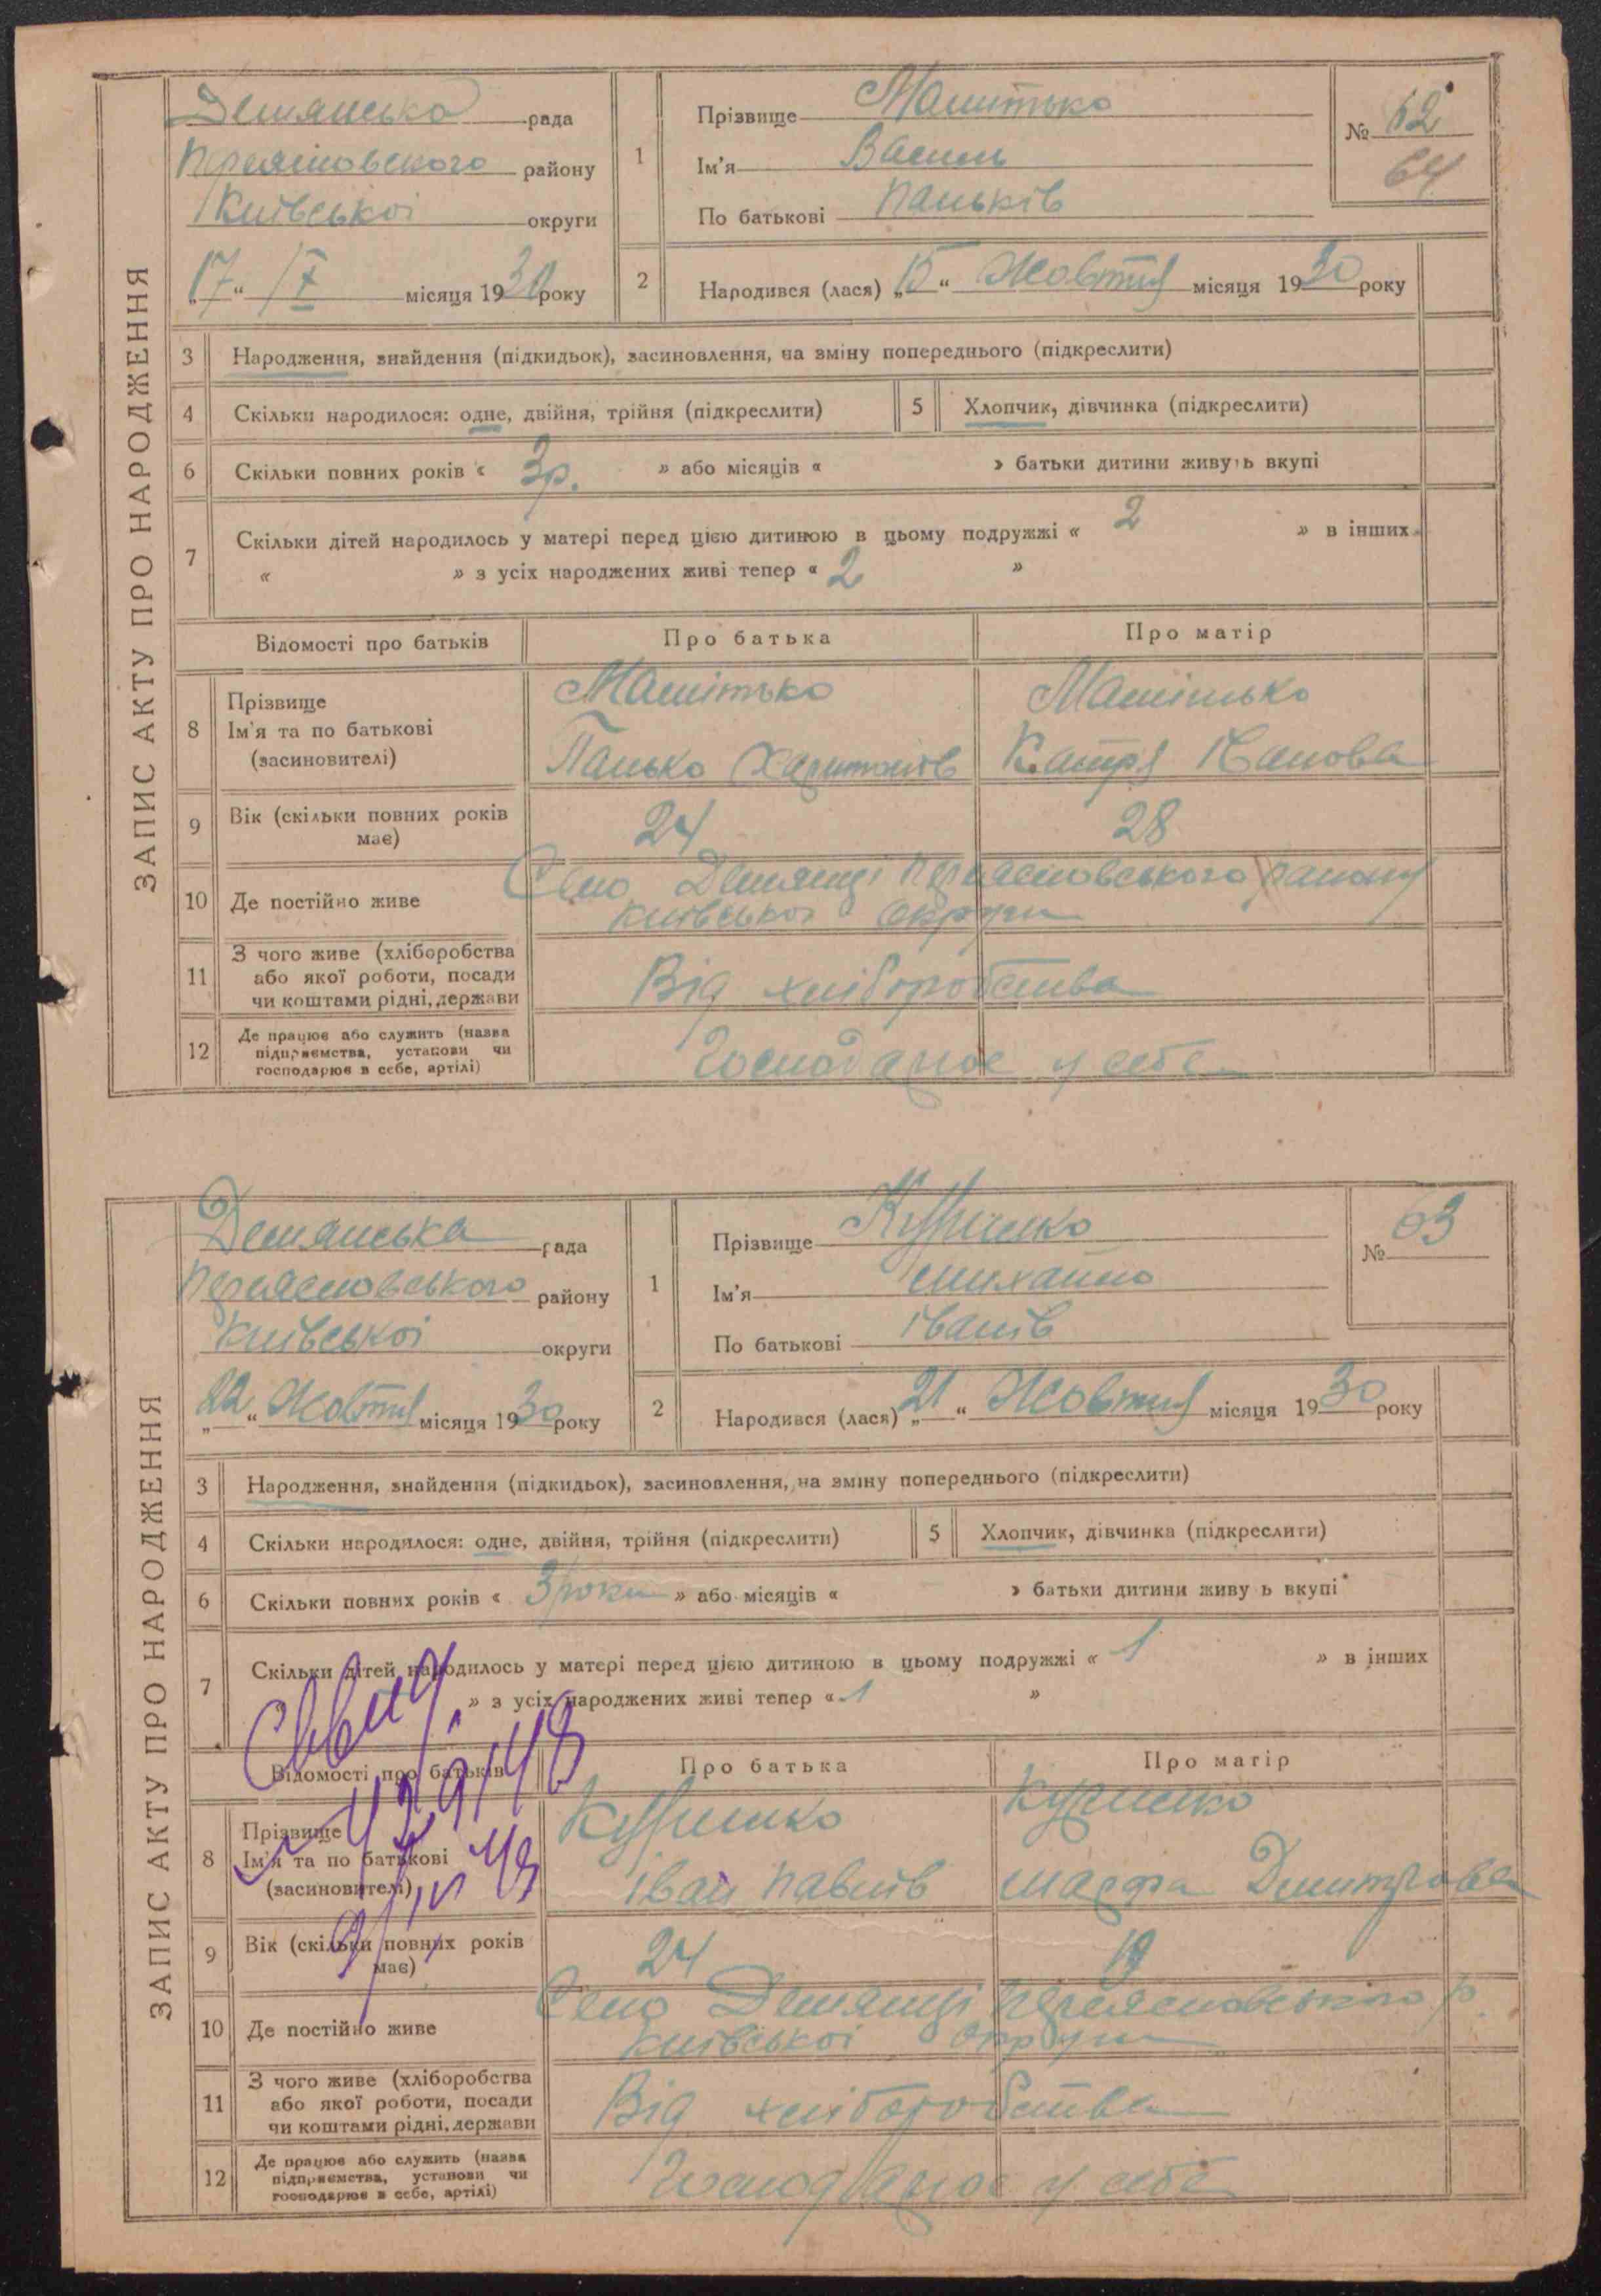 ЗАПИС АКТУ ПРО НАРОДЖЕННЯ
Демянська рада
Переяславського району
Київської округи
„17“ / X місяця 1930 року
1
Прізвище
Ім'я Василь
По батькові Паньків
№ 62
64
2
Народився (лася) „15“ Жовтня місяця 1930 року
3 Народження, знайдення (підкидьок), засиновлення, на зміну попереднього (підкреслити)
4 Скільки народилося: одне, двійня, трійня (підкреслити)
5 Хлопчик, дівчинка (підкреслити)
6 Скільки повних років « 3р. » або місяців « » батьки дитини живуть вкупі
7 Скільки дітей народилось у матері перед цією дитиною в цьому подружжі « 2 » в інших
« » з усіх народжених живі тепер « 2 »
Відомості про батьків Про батька Про матір
8 Прізвище
Ім'я та по батькові
(засиновителі)
Панько Харитонів
Катря Іванова
9 Вік (скільки повних років
має)
24 28
10 Де постійно живе
Село Демянці Переяславського району
Київської округи
11 З чого живе (хліборобства
або якої роботи, посади
чи коштами рідні, держави
Від хліборобства
12 Де працює або служить (назва
підприємства, установи чи
господарює в себе, артілі)
Господарює у себе
ЗАПИС АКТУ ПРО НАРОДЖЕННЯ
Демянська рада
Переяславського району
Київської округи
„22“ Жовтня місяця 1930 року
1
Прізвище
Ім'я Михайло
По батькові Іванів
№ 63
2
Народився (лася) „21“ Жовтня місяця 1930 року
3 Народження, знайдення (підкидьох), засиновлення, на зміну попереднього (підкреслити)
4 Скільки народилося: одне, двійня, трійня (підкреслити)
5 Хлопчик, дівчинка (підкреслити)
6 Скільки повних років « 3 роки » або місяців « » батьки дитини живу ь вкупі
7 Скільки дітей народилось у матері перед цією дитиною в цьому подружжі « 1 » в інших
» з усіх народжених живі тепер « 1 »
Відомості про батьків Про батька Про матір
8 Прізвище
Ім'я та по батькові
(засиновителі)
Іван Павлів
Марфа Дмитрова
9 Вік (скільки повних років
має)
24 19
10 Де постійно живе
Село Демянці Переяславського р
Київської округи
11 З чого живе (хліборобства
або якої роботи, посади
чи коштами рідні, держави
Від хліборобства
12 Де працює або служить (назва
підприємства, установи чи
господарює в себе, артілі)
Господарює у себе